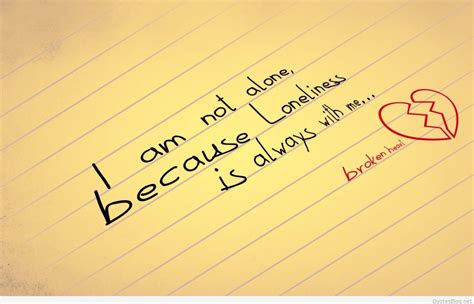 I am not alone,
because Loneliness
is always with me...
broken heart
QuotesBeg.net